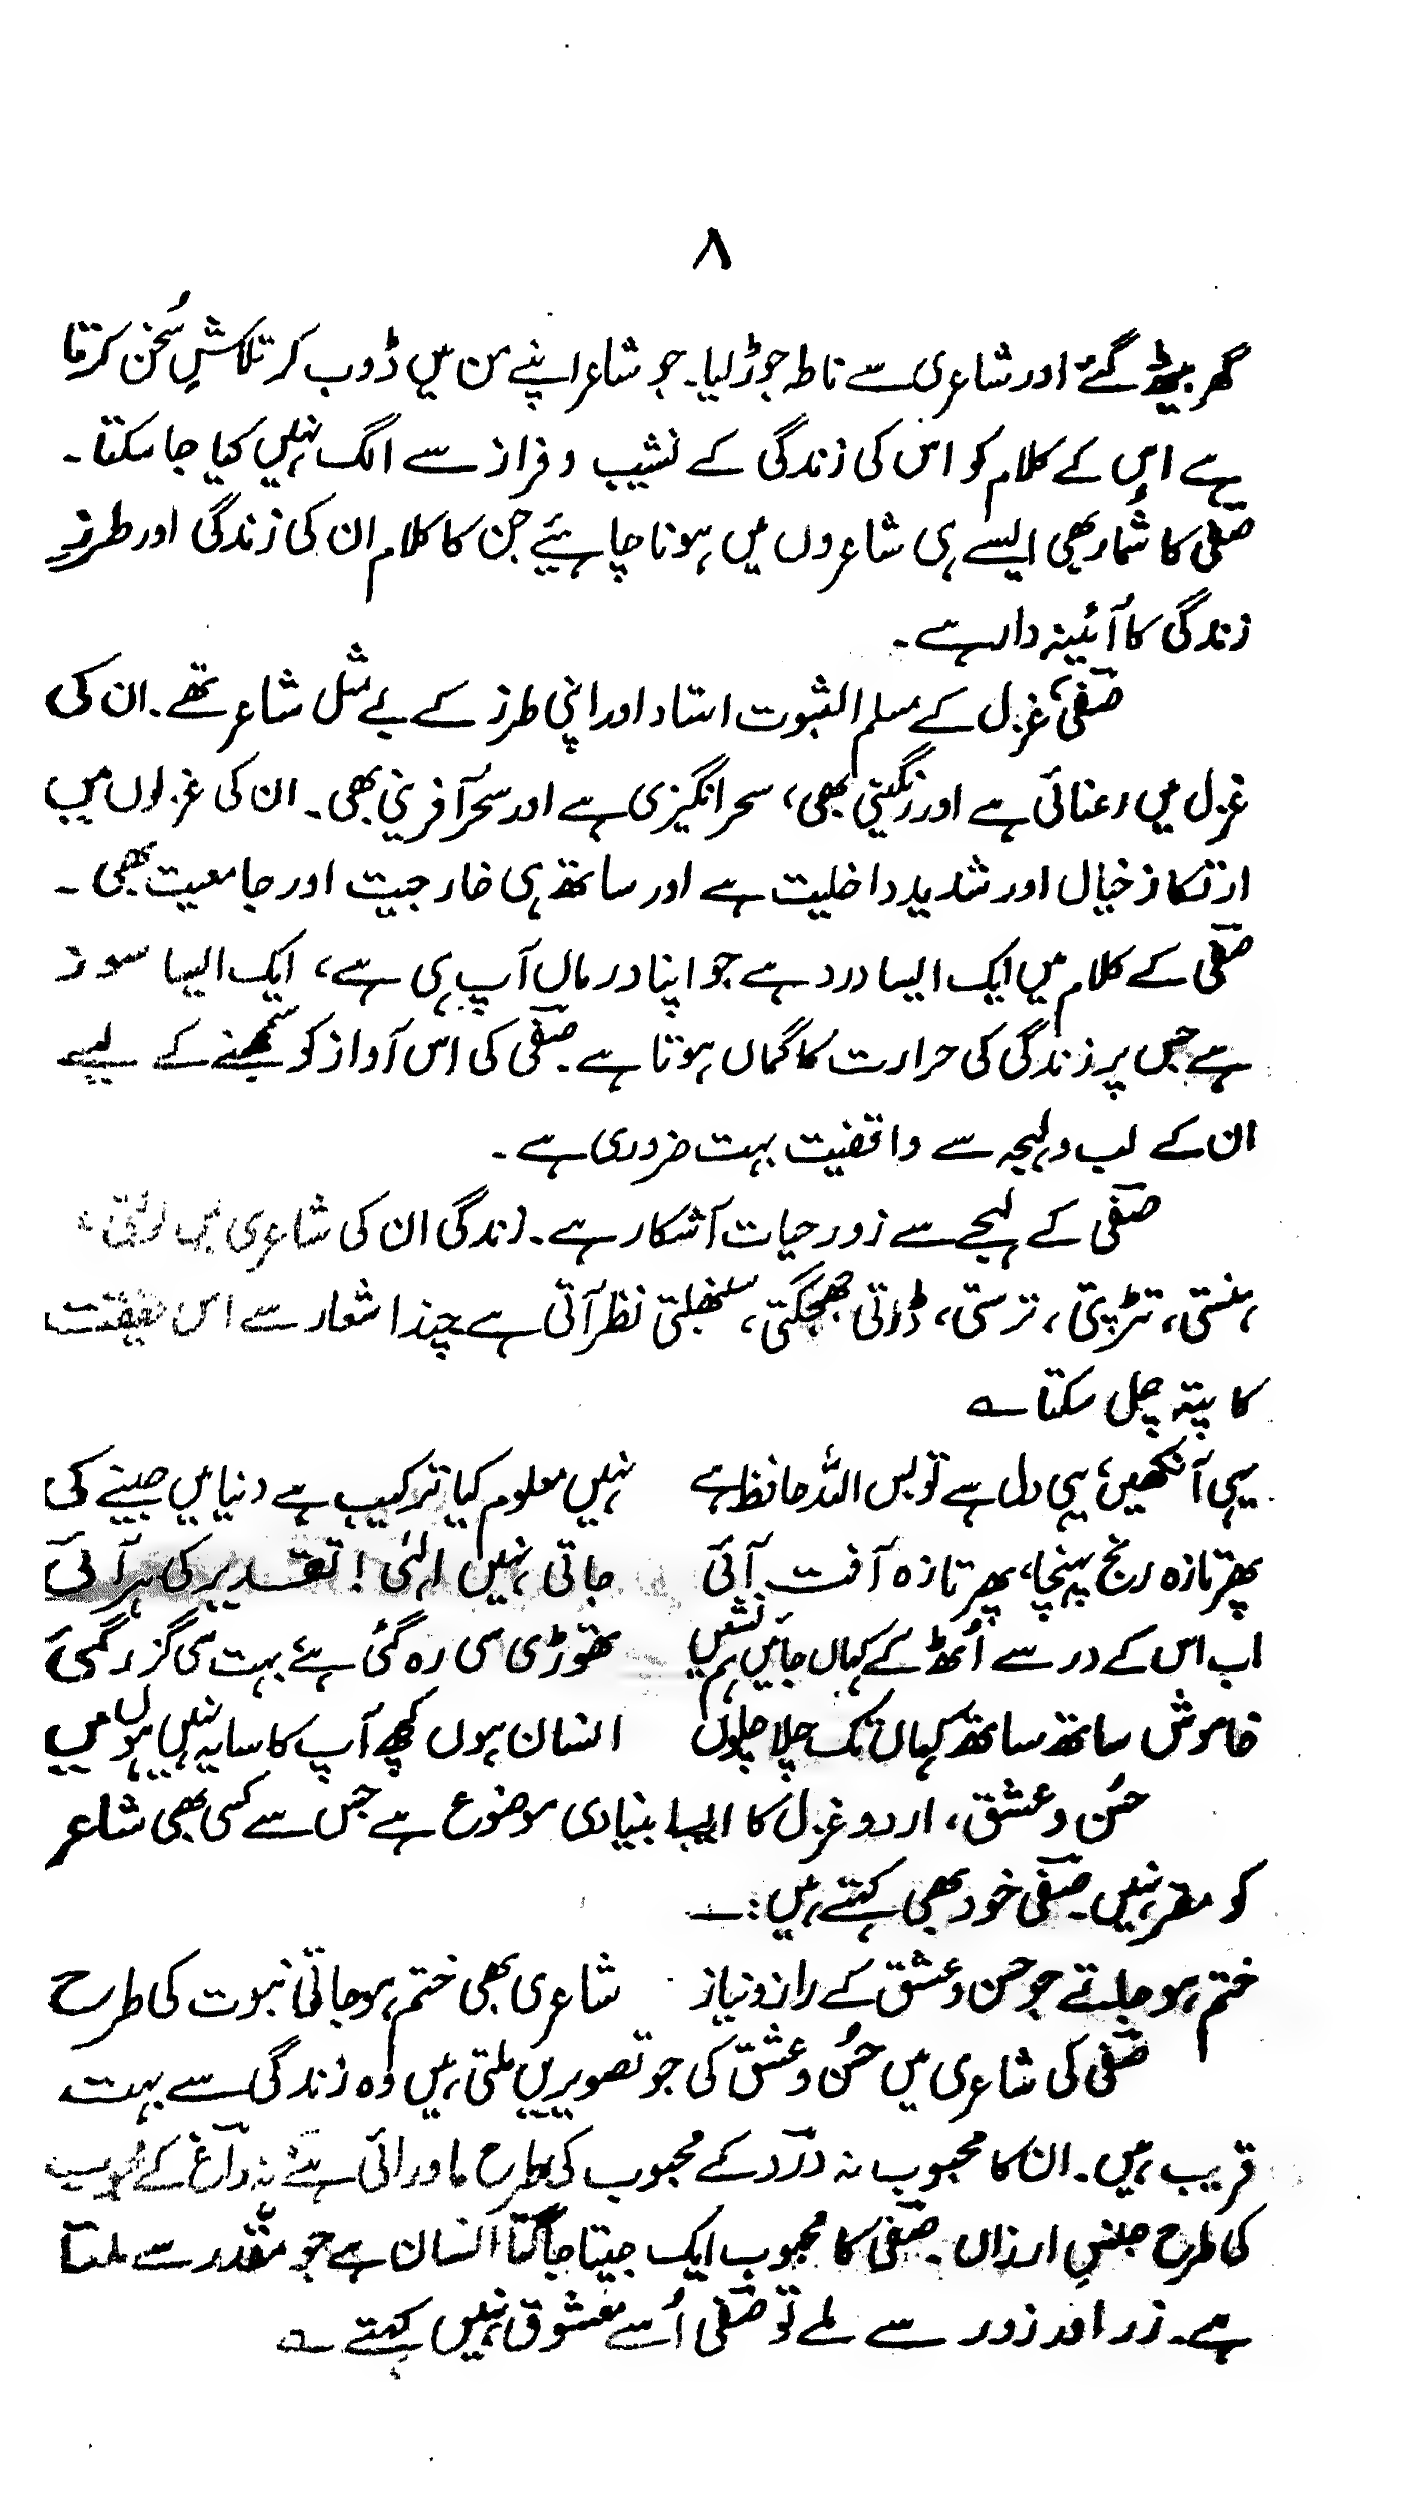 ۸
گھر بیٹھ گئے اور شاعری سے ناطہ جوڑ لیا۔ جو شاعر اپنے من میں ڈوب کر تلاشِ سُخن کرتا
ہے اس کے کلام کو اس کی زندگی کے نشیب و فراز سے الگ نہیں کیا جا سکتا۔
صفؔی کا شُمار بھی ایسے ہی شاعروں میں ہونا چاہئیے جن کا کلام ان کی زندگی اور طرزِ
زندگی کا آئینہ دار ہے۔
صفؔی، غزل کے مسلم الثبوت استاد اور اپنی طرز کے بے مثل شاعر تھے۔ ان کی
غزل میں رعنائی ہے اور رنگینی بھی، سحر انگیزی ہے اور سحر آفرینی بھی۔ ان کی غزلوں میں
ارتکاز خیال اور شدید داخلیت ہے اور ساتھ ہی خارجیت اور جامعیت بھی۔
صفؔی کے کلام میں ایک ایسا درد ہے جو اپنا درماں آپ ہی ہے، ایک ایسا سوز
ہے جس پر زندگی کی حرارت کا گماں ہوتا ہے۔ صفؔی کی اس آواز کو سمجھنے کے لیے
ان کے لب ولہجہ سے واقفیت بہت ضروری ہے۔
صفؔی کے لہجے سے زور حیات آشکار ہے۔ زندگی ان کی شاعری میں
ہنستی، تڑپتی، ترستی، ڈرتی جھجکتی، سنبھلتی نظر آتی ہے چند اشعار سے اس حقیقت
کا پتہ چل سکتا ہے
یہی آنکھیں، یہی دل ہے تو بس اللہ حافظ ہے نہیں معلوم کیا ترکیب ہے دنیا میں جینے کی
پھر تازہ رنج پہنچا، پھر تازہ آفت آئی جاتی نہیں الٰہی! تقدیر کی ہر آئی
اب اس کے در سے اُٹھ کے کہاں جائیں ہم نشیں تھوڑی سی رہ گئی ہے بہت سی گزر گئی
خاموش ساتھ ساتھ کہاں تک چلا چلوں انسان ہوں کچھ آپ کا سایہ نہیں ہوں میں
حُسن و عشق، اردو غزل کا ایسا بنیادی موضوع ہے جس سے کسی بھی شاعر
کو مفر نہیں۔ صفؔی خود بھی کہتے ہیں:۔
ختم ہو جاتے جو حسن و عشق کے راز و نیاز شاعری بھی ختم ہو جاتی نبوت کی طرح
صفؔی کی شاعری میں حُسن و عشق کی جو تصویریں ملتی ہیں وہ زندگی سے بہت
قریب ہیں۔ ان کا محبوب نہ دردؔ کے محبوب کی طرح ماورائی ہے نہ داغؔ کے محبوب
کی طرح جنسِ ارزاں۔ صفؔی کا محبوب ایک جیتا جاگتا انسان ہے جو مقدر سے ملتا
ہے۔ زر اور زور سے ملے تو صفؔی اُسے معشوق نہیں کہتے ہے